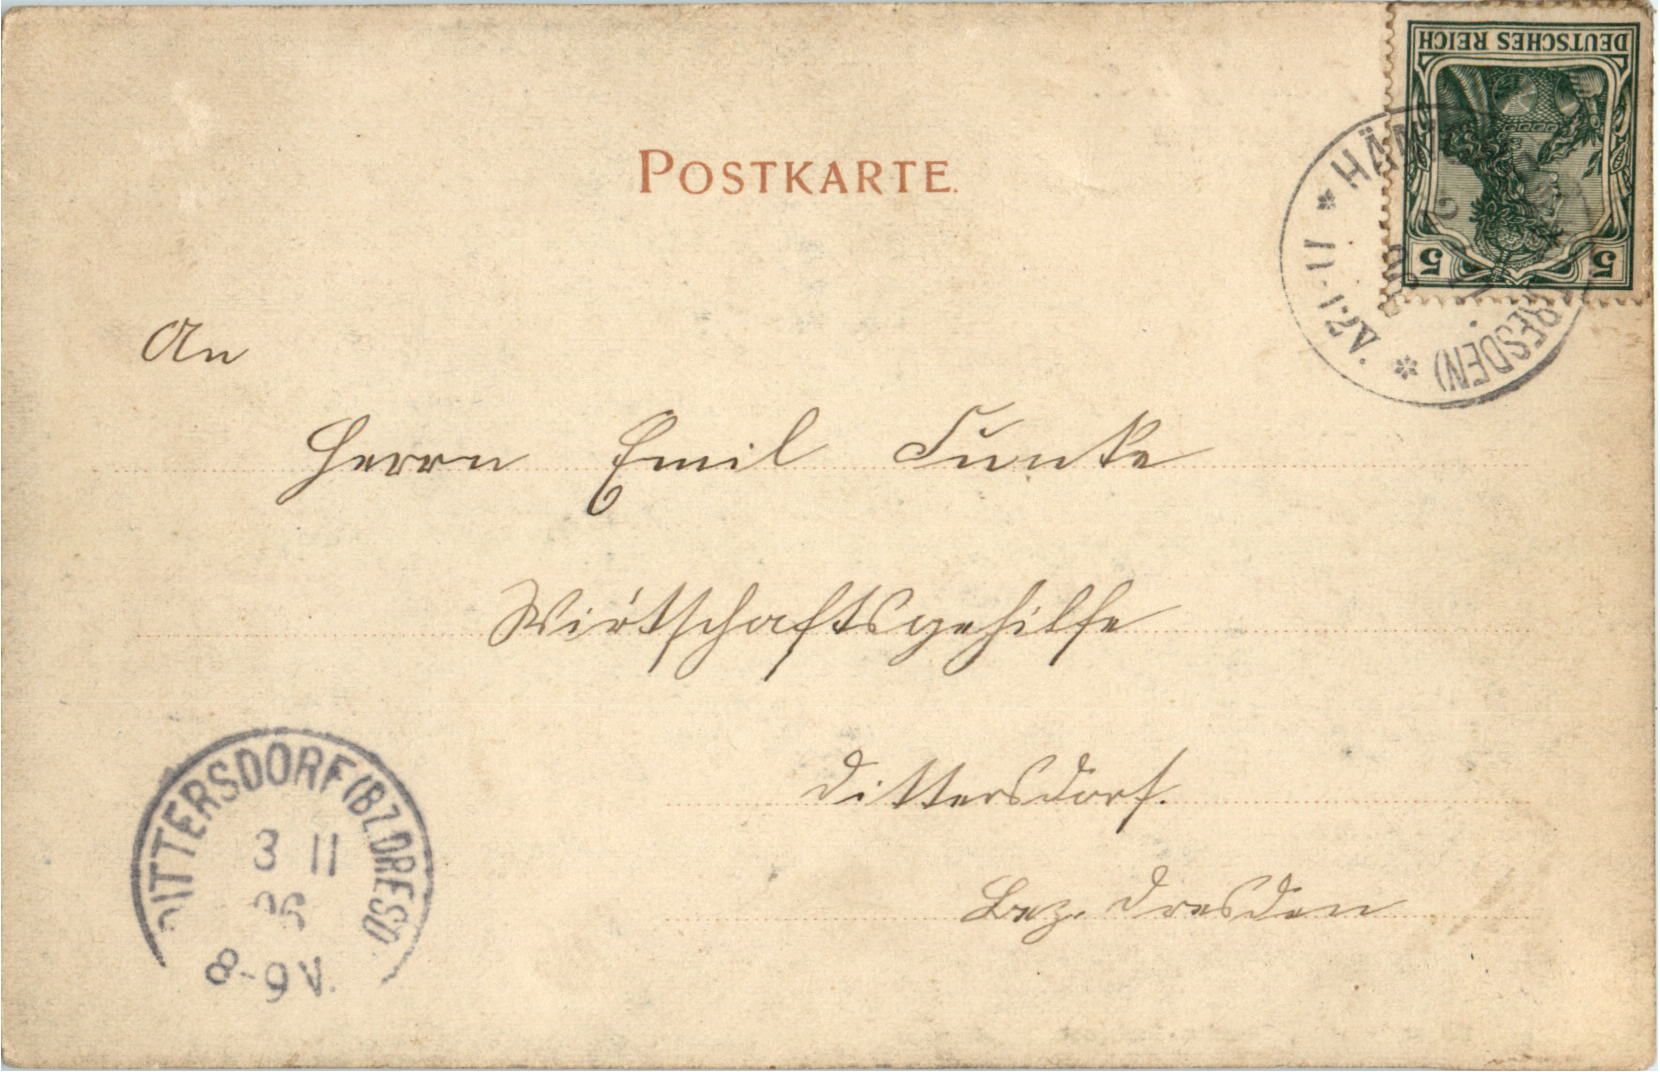 DEUTSCHES REICH
5 5
POSTKARTE.
* HÄIN
RESDEN) *
11-12V.
An
Herrn Emil Funke
Wirtschaftsgehilfe
Dittersdorf.
Bez. Dresden
DITTERSDORF (BZ. DRESD
3 11
06
8-9 V.